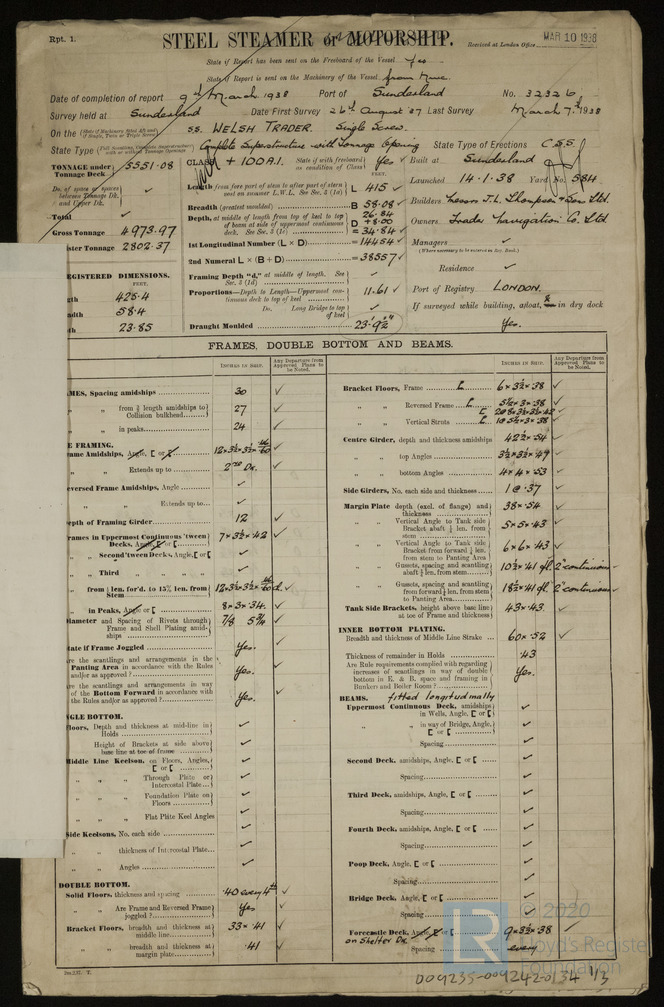 Rpt. 1.
STEEL STEAMER or MOTORSHIP.
Received at London Office MAR 10 1938
State if Report has been sent on the Freeboard of the Vessel Yes
State if Report is sent on the Machinery of the Vessel from
Date of completion of report 9th March 1938 Port of Sunderland No. 32326
Survey held at Sunderland Date First Survey 26th August '37 Last Survey March 7th 1938
On the S.S. WELSH TRADER Single Screw.
State Type Complete Superstructure with Tonnage Opening State Type of Erections C.S.S.
TONNAGE under Tonnage Deck 5551.08
CLASS + 100A.1. State if with freeboard as condition of Class Yes
Built at Sunderland
Launched 14.1.38 Yard No. 584
Builders Messrs J.L. Thompson & Sons Ltd.
Owners Trader Navigation Co. Ltd
Managers
(Where necessary to be entered in Reg. Book.)
Residence
Port of Registry LONDON.
If surveyed while building, afloat, & in dry dock
Yes.
Do. of space or spaces between Tonnage Dk. and Upper Dk.
Total
Gross Tonnage 4973.97
ister Tonnage 2802.37
EGISTERED DIMENSIONS.
FEET.
gth 425.4
adth 58.4
th 23.85
FEET.
Length from fore part of stem to after part of stern post on summer L.W.L. See Sec. 3 (1a) L 415
Breadth (greatest moulded) B 58.08
Depth, at middle of length from top of keel to top of beam at side of uppermost continuous deck. See Sec. 3 (1c) D 26.84 + 8.00 = 34.84
1st Longitudinal Number (L × D) = 14454
2nd Numeral L × (B + D) = 38557
Framing Depth "d," at middle of length. See Sec. 3 (1d)
Proportions—Depth to Length—Uppermost continuous deck to top of keel 11.61
Do. Long Bridge to top of keel
Draught Moulded 23'.9½"
FRAMES, DOUBLE BOTTOM AND BEAMS.
INCHES IN SHIP. Any Departure from Approved Plans to be Noted.
MES, Spacing amidships 30
" " from ⅗ length amidships to Collision bulkhead 27
" " in peaks 24
E FRAMING.
rame Amidships, Angle, [ or
" " Extends up to 2nd Dk.
eversed Frame Amidships, Angle
" " Extends up to
epth of Framing Girder 12
rames in Uppermost Continuous 'tween Decks, Angle, [ or [ 7 × 3½ × .42
" " Second 'tween Decks, Angle, [ or [
" " Third " "
" " from ⅕ len. for'd. to 15% len. from Stem
" " in Peaks, Angle or [ 8 × 3 × .34.
iameter and Spacing of Rivets through Frame and Shell Plating amidships 7/8
tate if Frame Joggled Yes.
re the scantlings and arrangements in the Panting Area in accordance with the Rules and/or as approved? Yes.
re the scantlings and arrangements in way of the Bottom Forward in accordance with the Rules and/or as approved? Yes.
GLE BOTTOM.
loors, Depth and thickness at mid-line in Holds
Height of Brackets at side above base line at toe of frame
iddle Line Keelson, on Floors, Angles, [ or [
" " Through Plate or Intercostal Plate
" " Foundation Plate on Floors
" " Flat Plate Keel Angles
Side Keelsons, No. each side
" " thickness of Intercostal Plate
" " Angles
DOUBLE BOTTOM.
Solid Floors, thickness and spacing .40 every 4th
" " Are Frame and Reversed Frame joggled? Yes
Bracket Floors, breadth and thickness at middle line 33 × .41
" " breadth and thickness at margin plate .41
INCHES IN SHIP. Any Departure from Approved Plans to be Noted.
Bracket Floors, Frame 6 × 3½ × .38
" " Reversed Frame 5½ × 3 × .38
" " Vertical Struts
Centre Girder, depth and thickness amidships 42½ × .54
" " top Angles 3½ × 3½ × .49
" " bottom Angles 4 × 4 × .53
Side Girders, No. each side and thickness 1 @ .37
Margin Plate depth (excl. of flange) and thickness 38 × .54
" " Vertical Angle to Tank side Bracket abaft ¼ len. from stem 5 × 5 × .43
" " Vertical Angle to Tank side Bracket from forward ¼ len. from stem to Panting Area 6 × 6 × .43
" " Gussets, spacing and scantling abaft ¼ len. from stem 10½ × .41 fl. 2" continuous
" " Gussets, spacing and scantling from forward ¼ len. from stem to Panting Area 18½ × .41 fl. 2" continuous
Tank Side Brackets, height above base line at toe of Frame and thickness 43 × .43
INNER BOTTOM PLATING.
Breadth and thickness of Middle Line Strake 60 × .52
Thickness of remainder in Holds .43
Are Rule requirements complied with regarding increases of scantlings in way of double bottom in E. & B. space and framing in Bunkers and Boiler Room? Yes.
BEAMS. fitted longitudinally
Uppermost Continuous Deck, amidships in Wells, Angle, [ or [
" " in way of Bridge, Angle, [ or [
Spacing
Second Deck, amidships, Angle, [ or [
Spacing
Third Deck, amidships, Angle, [ or [
Spacing
Fourth Deck, amidships, Angle, [ or [
Spacing
Poop Deck, Angle, [ or [
Spacing
Bridge Deck, Angle, [ or [
Spacing
Forecastle Deck, Angle, [ or [ 9 × 3½ × .38
on Shelter Dk.
Spacing every
© 2020
Lloyd's Register
Foundation
LR
009235-009242-0134 1/3